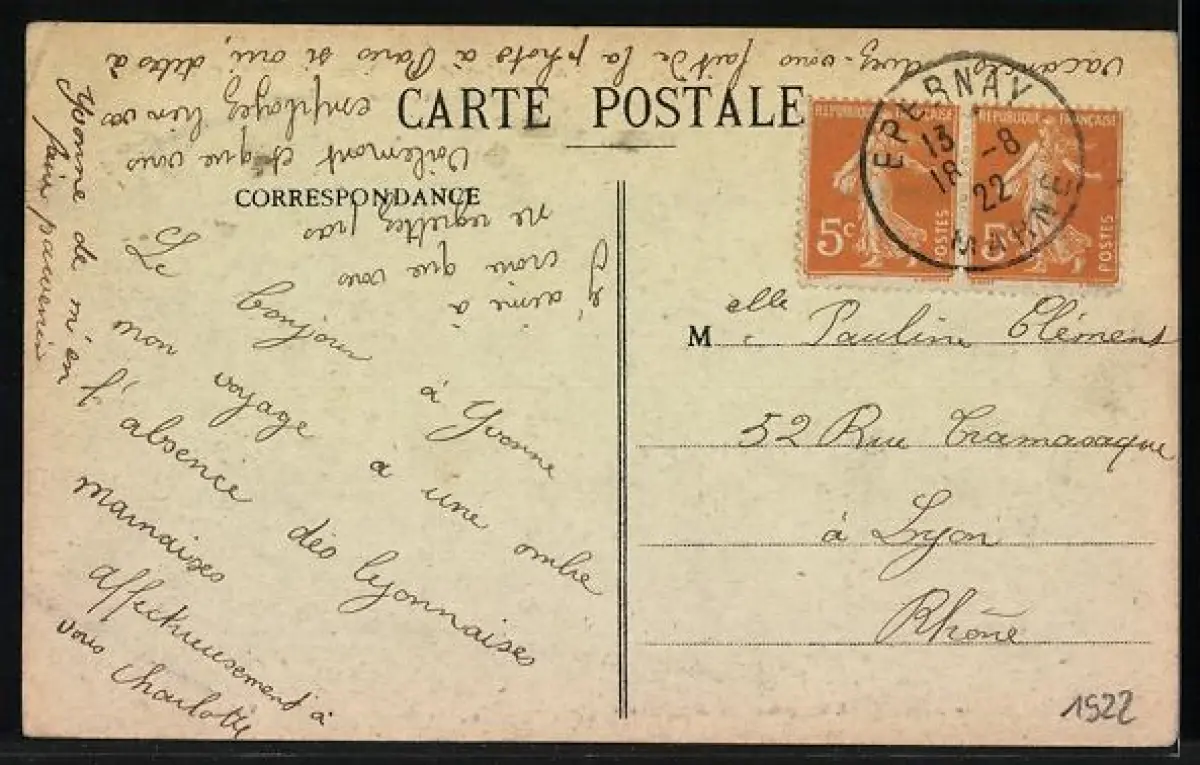 CARTE POSTALE
CORRESPONDANCE
RÉPUBLIQUE FRANÇAISE
5c POSTES
RÉPUBLIQUE FRANÇAISE
5c POSTES
EPERNAY
13
18 -8
22
MARNE
Melle Pauline Clément
52 Rue Tramassaque
à Lyon
Rhône
1922
Le bonjour à Yvonne
mon voyage à une ombre
l'absence des lyonnaises
marnaises
affectueusement à
vous Charlotte
j'aime à
croire que vous
ne regrettez pas
et que vous
employez bien vos
vacances, avez-vous fait de la photo à Paris si oui, dites à
Yvonne de m'en
faire parvenir